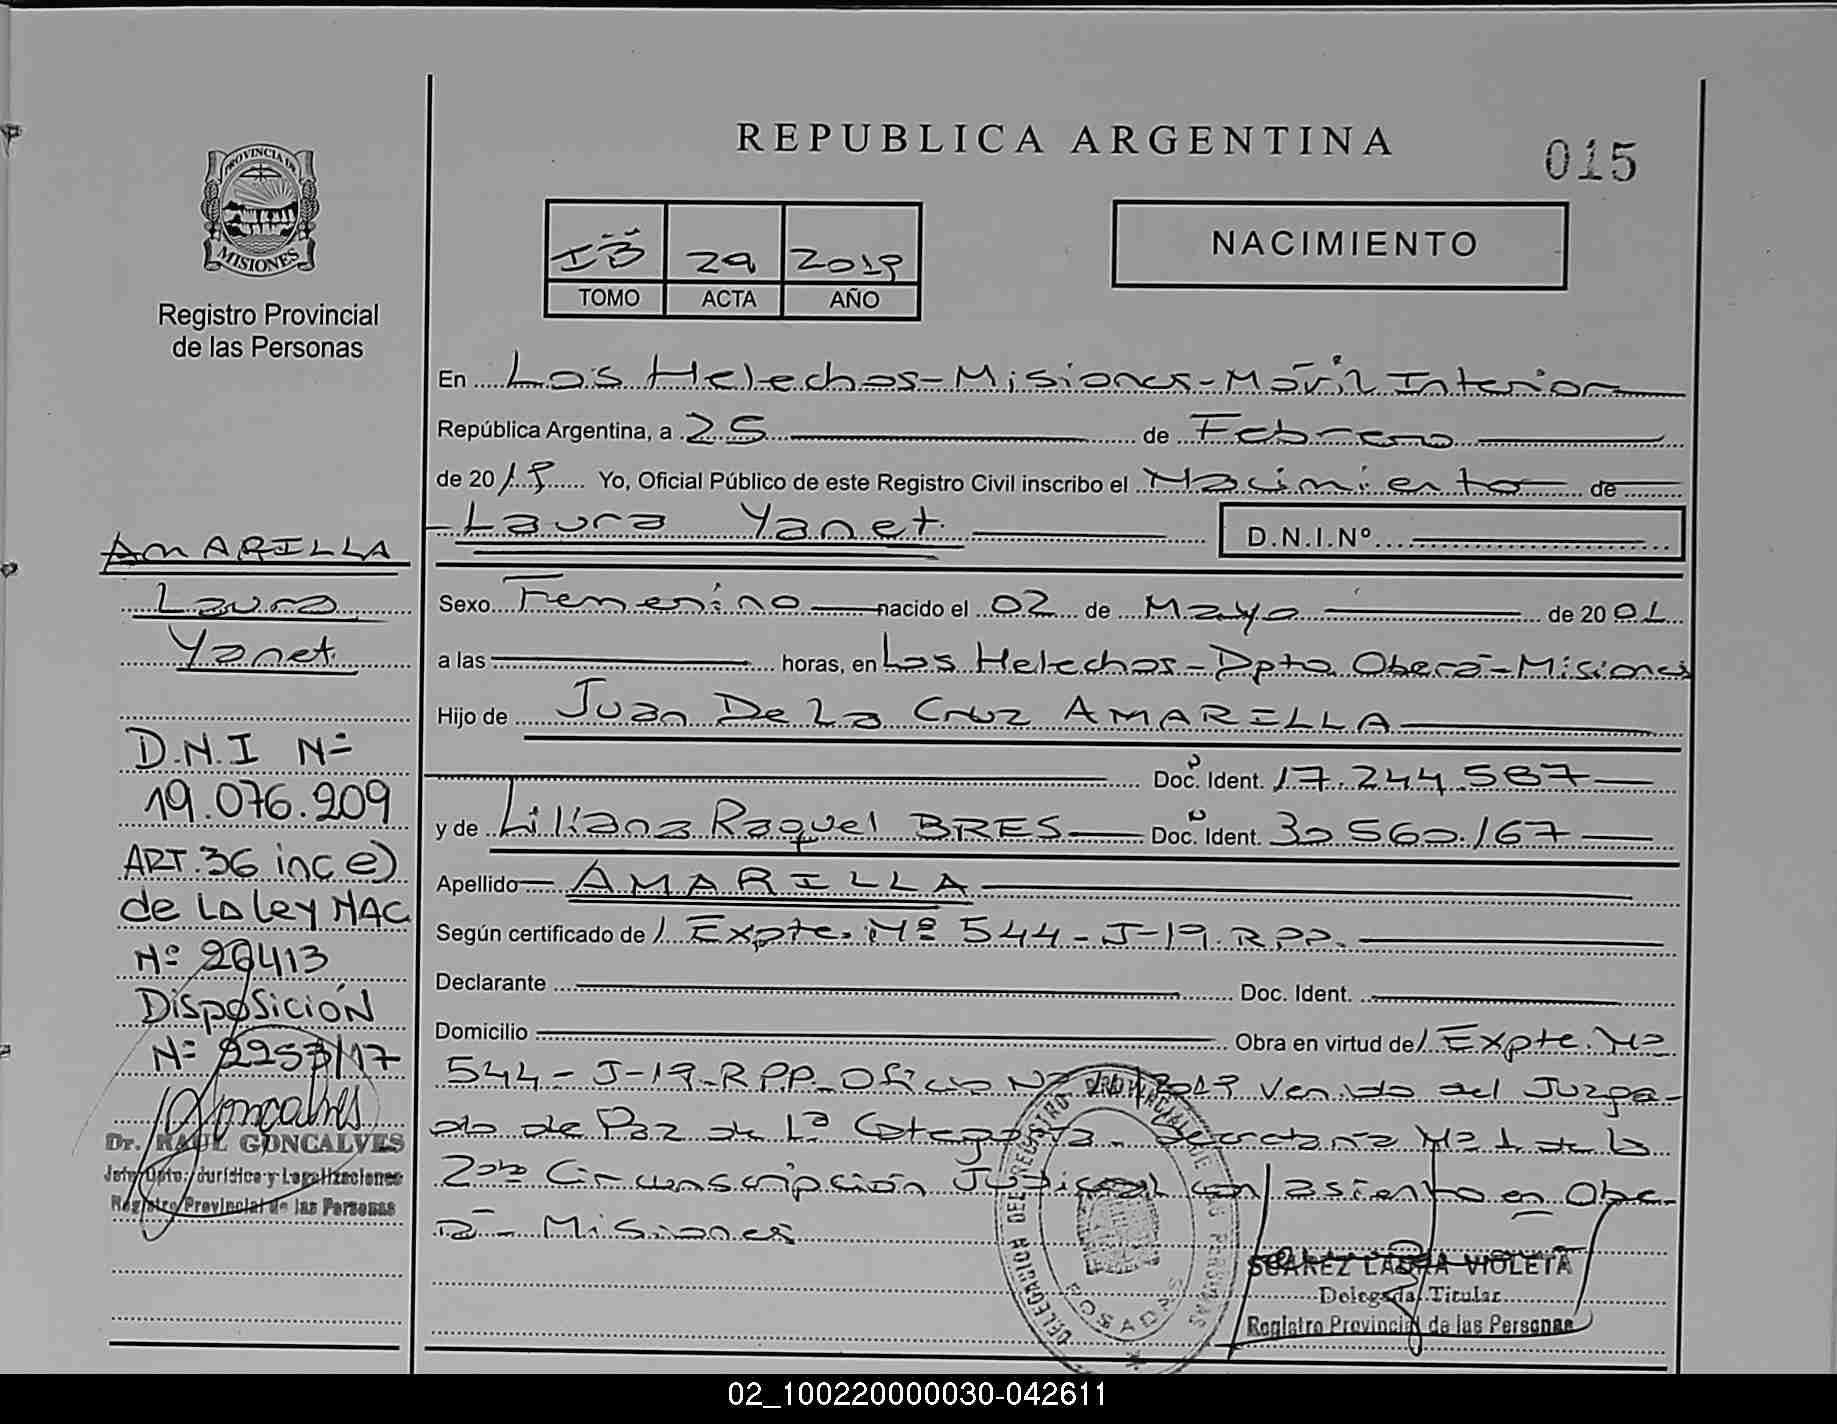 REPUBLICA ARGENTINA
015
PROVINCIA DE
MISIONES
Registro Provincial
de las Personas
29 2019
TOMO ACTA AÑO
NACIMIENTO
En Los Helechos - Misiones - Móvil Interior
República Argentina, a 25 de Febrero
de 2019 Yo, Oficial Público de este Registro Civil inscribo el Nacimiento de
Laura Yanet
D.N.I.Nº
Sexo Femenino nacido el 02 de Mayo de 2001
a las horas, en Los Helechos - Dpto Oberá - Misiones
Hijo de Juan De La Cruz AMARILLA
Doc. Ident. 17.244.587
y de Liliana Raquel BRES Doc. Ident. 30.560.167
Apellido AMARILLA
Según certificado de / Expte. Nº 544 - J-19 RPP.
Declarante Doc. Ident.
Domicilio Obra en virtud de / Expte. Nº
544 - J-19-RPP- Oficio Nº 2019 venido del Juzga-
do de Paz de 1ª Categoría - Secretaría Nº 1 de la
2da Circunscripción Judicial con asiento en Obe-
rá - Misiones
AMARILLA
Laura
Yanet
D.N.I Nº
19.076.209
ART. 36 inc e)
de La Ley NAC
Nº 26413
Disposición
Nº 2253/17
Goncalves
Dr. RAUL GONCALVES
Jefe Dpto. Jurídico y Legalizaciones
Registro Provincial de las Personas
DELEGACION DEL REGISTRO PROVINCIAL DE LAS PERSONAS
POSADAS
SUAREZ LAURA VIOLETA
Delegada Titular
Registro Provincial de las Personas
02_100220000030-042611